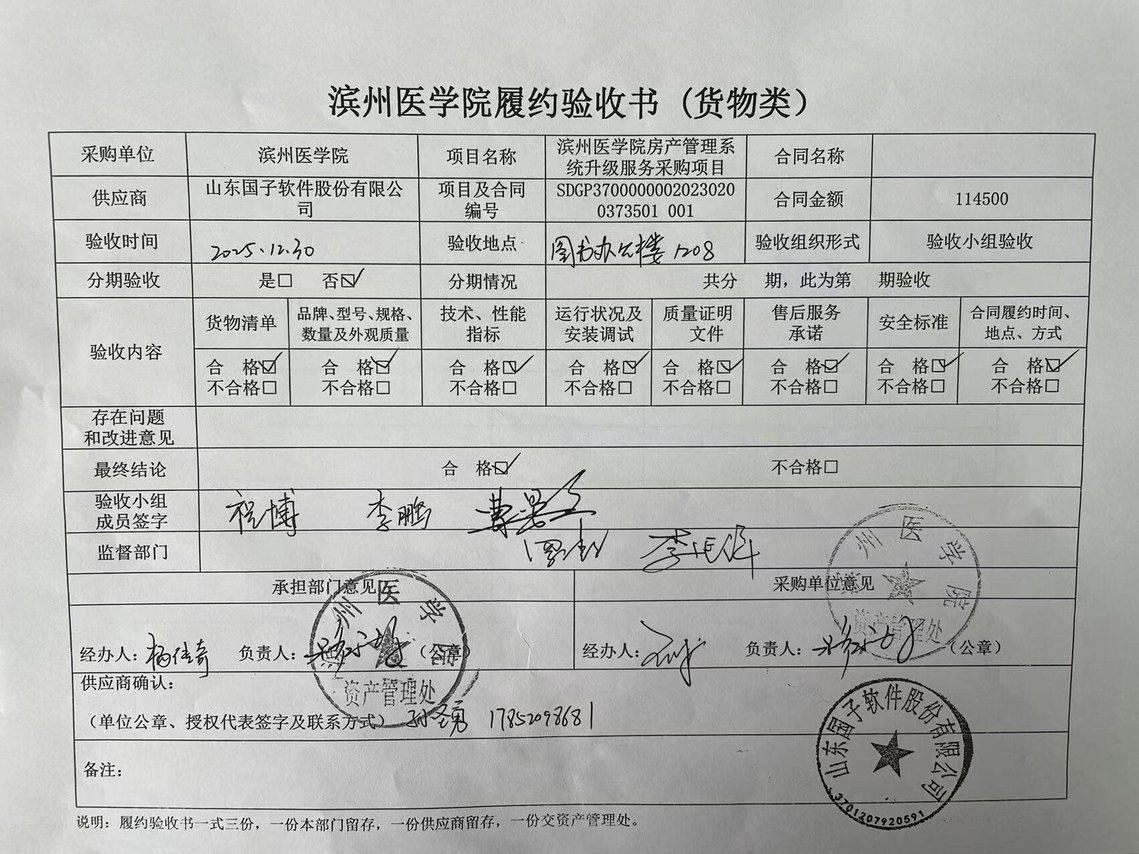 滨州医学院履约验收书（货物类）
采购单位 滨州医学院 项目名称 滨州医学院房产管理系统升级服务采购项目 合同名称
供应商 山东国子软件股份有限公司 项目及合同编号 SDGP3700000002023020 0373501 001 合同金额 114500
验收时间 2025.12.30 验收地点 图书办公楼 1208 验收组织形式 验收小组验收
分期验收 是□ 否☑ 分期情况 共分 期，此为第 期验收
验收内容 货物清单 品牌、型号、规格、数量及外观质量 技术、性能指标 运行状况及安装调试 质量证明文件 售后服务承诺 安全标准 合同履约时间、地点、方式
合 格☑ 合 格☑ 合 格☑ 合 格☑ 合 格☑ 合 格☑ 合 格☑ 合 格☑
不合格□ 不合格□ 不合格□ 不合格□ 不合格□ 不合格□ 不合格□ 不合格□
存在问题和改进意见
最终结论 合 格☑ 不合格□
验收小组成员签字 祝博 李鹏
监督部门
承担部门意见 采购单位意见
经办人：杨佳奇 负责人： （公章） 经办人： 负责人： （公章）
滨州医学院
资产管理处
滨州医学院
资产管理处
供应商确认：
（单位公章、授权代表签字及联系方式） 17852098681
山东国子软件股份有限公司
3701207920591
备注：
说明：履约验收书一式三份，一份本部门留存，一份供应商留存，一份交资产管理处。